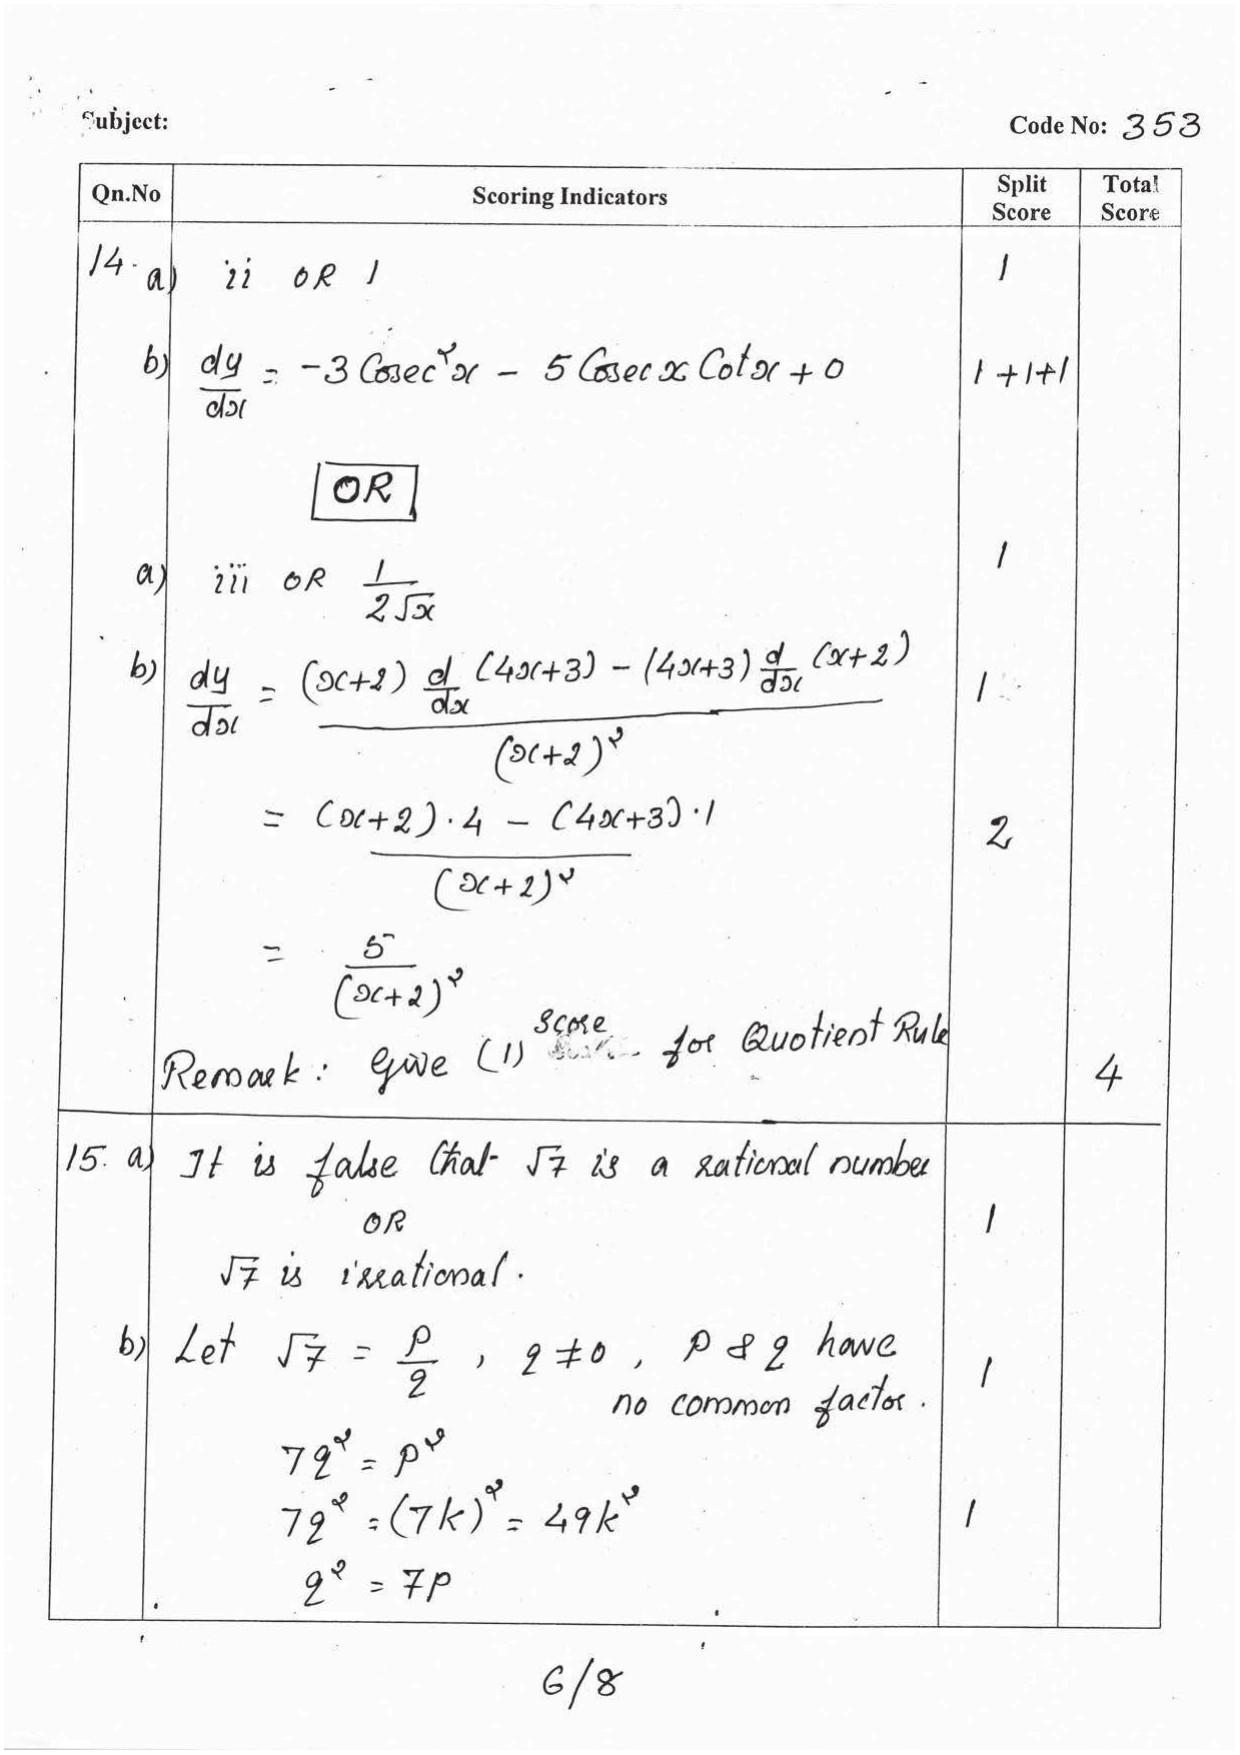 Subject:
Code No: 353
Qn.No Scoring Indicators Split Score Total Score
14. a) ii OR 1 1
b) dy/dx = -3 Cosec²x - 5 Cosec x Cot x + 0 1+1+1
OR
a) iii OR 1/(2√x) 1
b) dy/dx = ((x+2) d/dx (4x+3) - (4x+3) d/dx (x+2))/(x+2)² 1
= ((x+2)·4 - (4x+3)·1)/(x+2)² 2
= 5/(x+2)²
Remark: Give (1) Score for Quotient Rule 4
15. a) It is false that √7 is a rational number
OR 1
√7 is irrational.
b) Let √7 = p/q, q ≠ 0, p & q have 1
no common factor.
7q² = p²
7q² = (7k)² = 49k² 1
q² = 7p
6/8